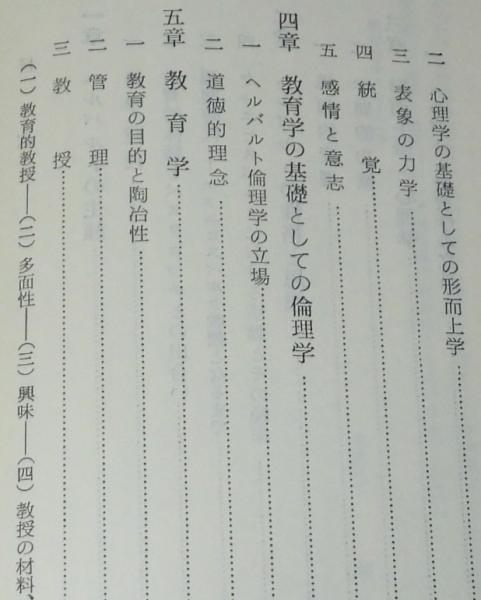 二 心理学の基礎としての形而上学
三 表象の力学
四 統覚
五 感情と意志
四章 教育学の基礎としての倫理学
一 ヘルバルト倫理学の立場
二 道徳的理念
五章 教育学
一 教育の目的と陶冶性
二 管理
三 教授
(一) 教育的教授――(二) 多面性――(三) 興味――(四) 教授の材料、